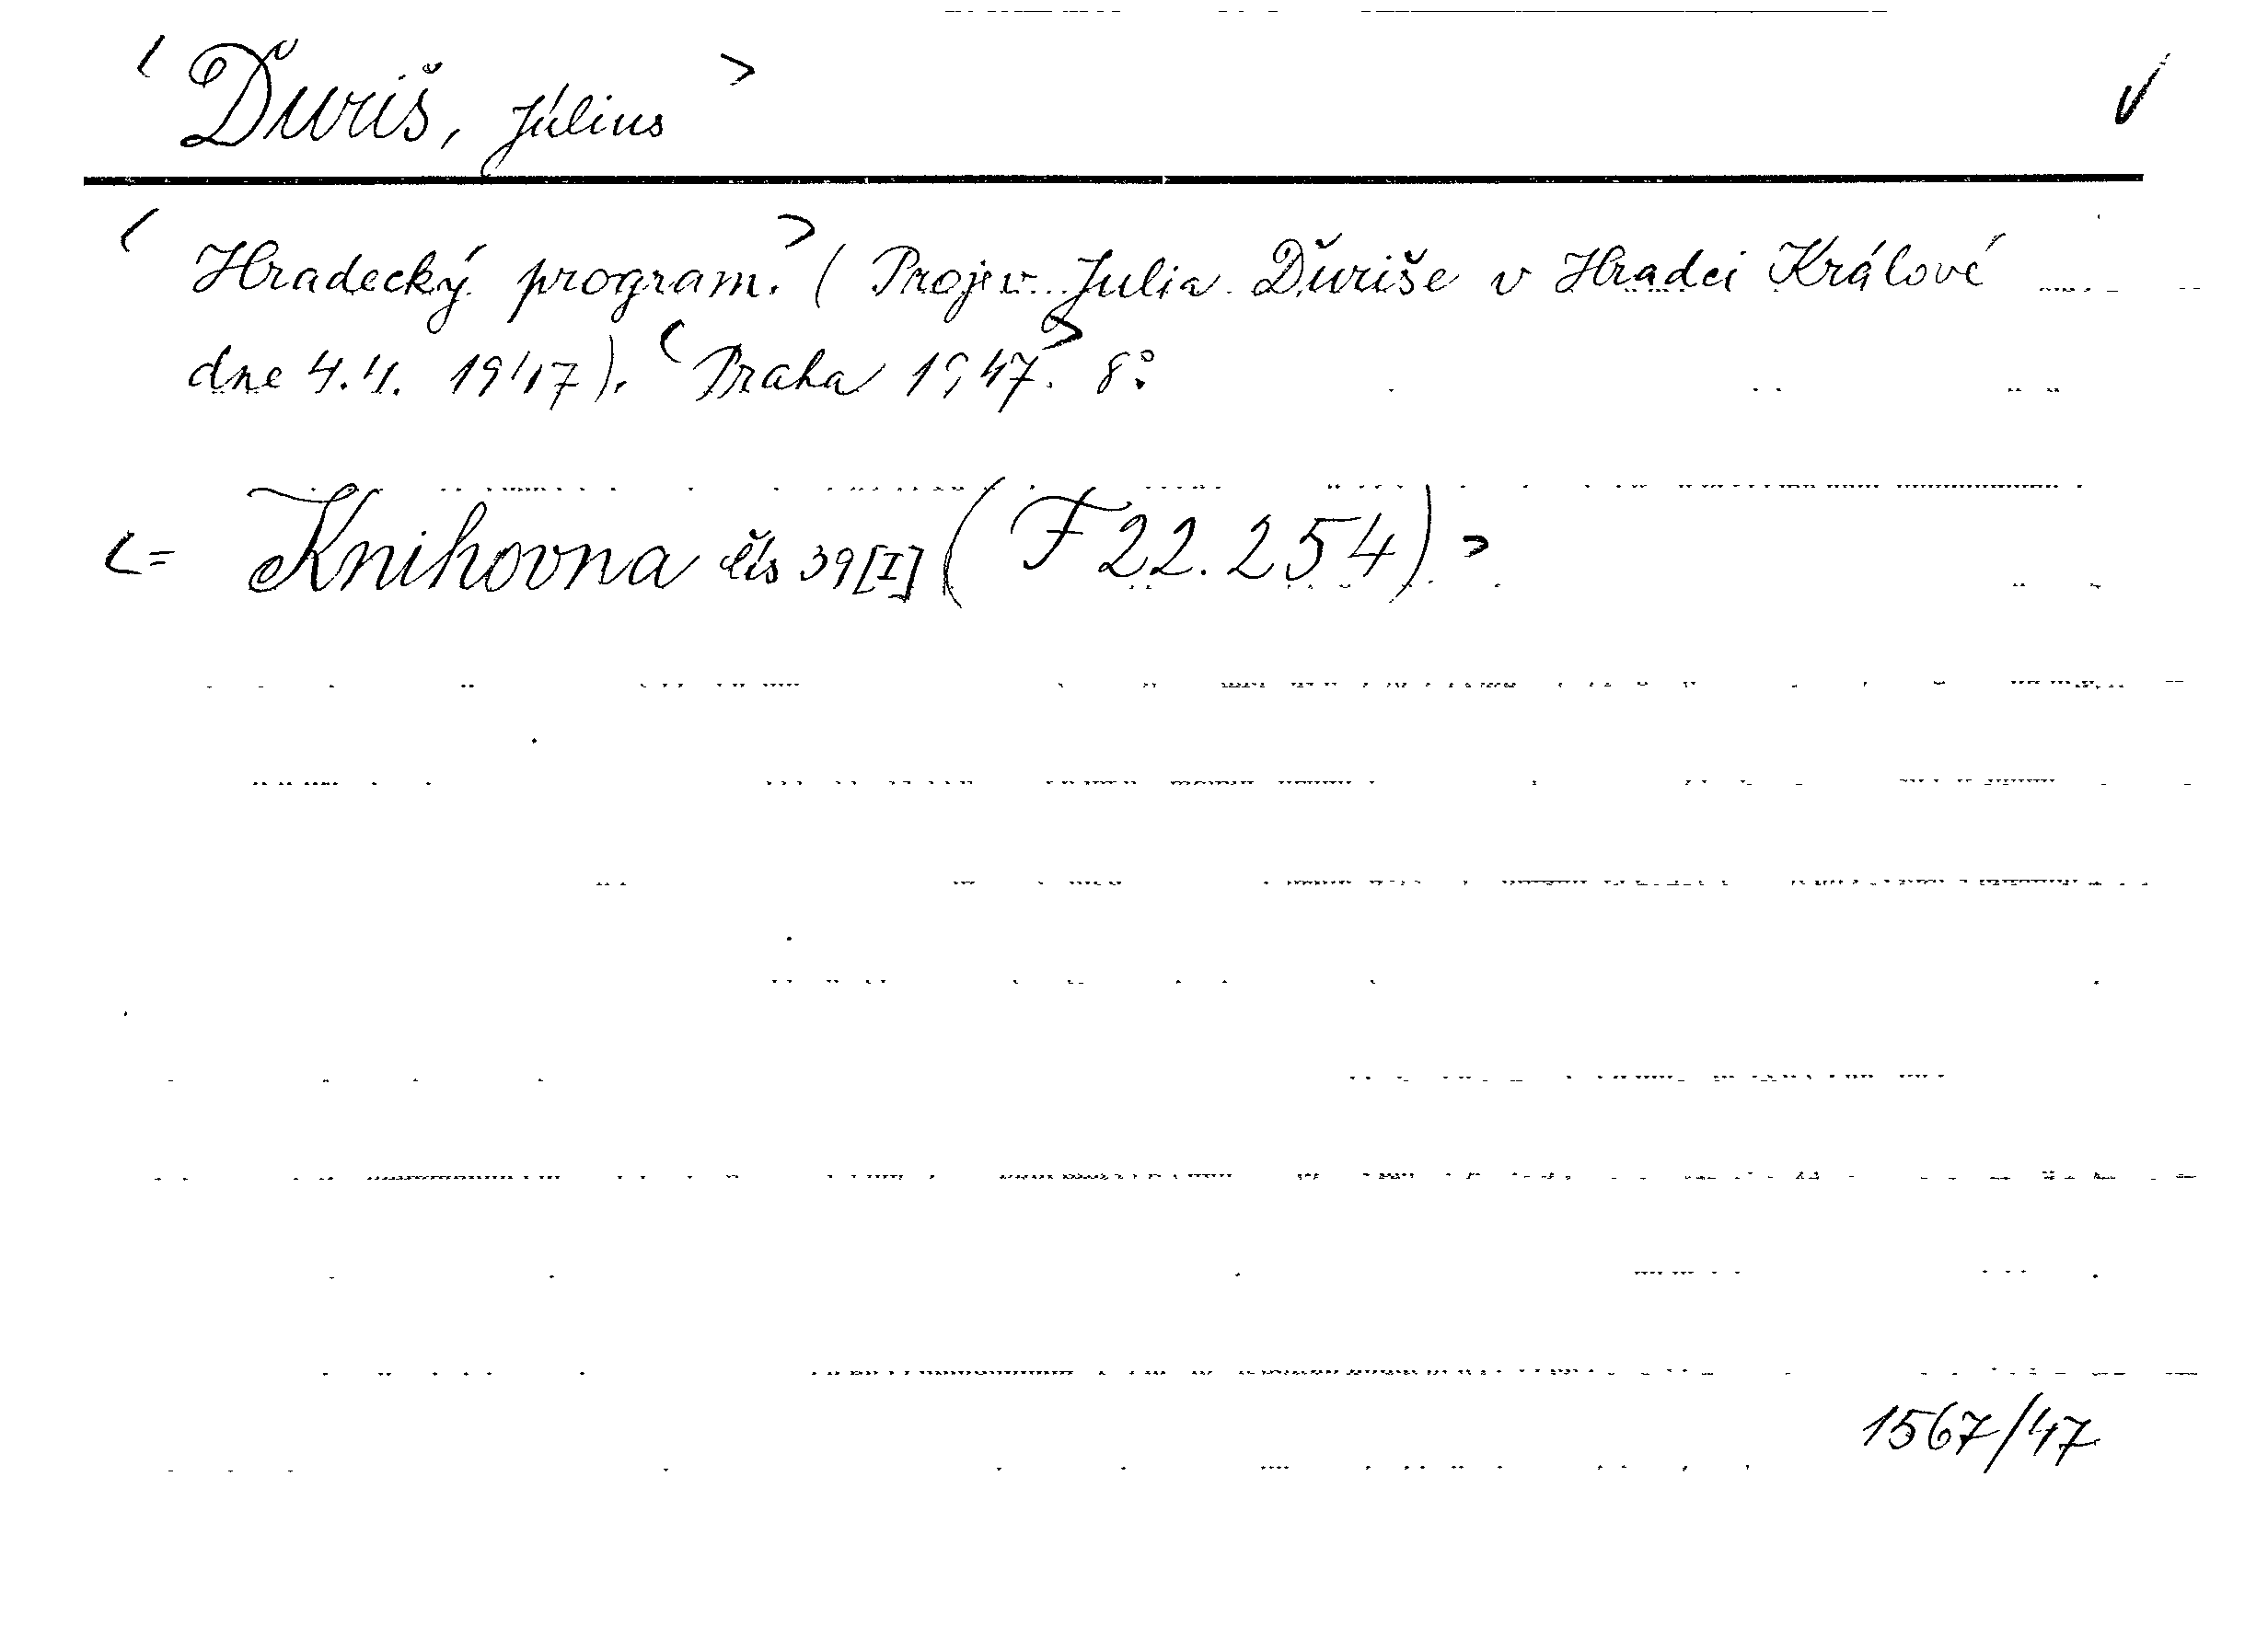 < Ďuriš, Július > √
< Hradecký program. > ( Projev Julia Ďuriše v Hradci Králové
dne 4.4. 1947). < Praha 1947. > 8°.
< = Knihovna čís 39[I] ( F 22.254). >
1567/47